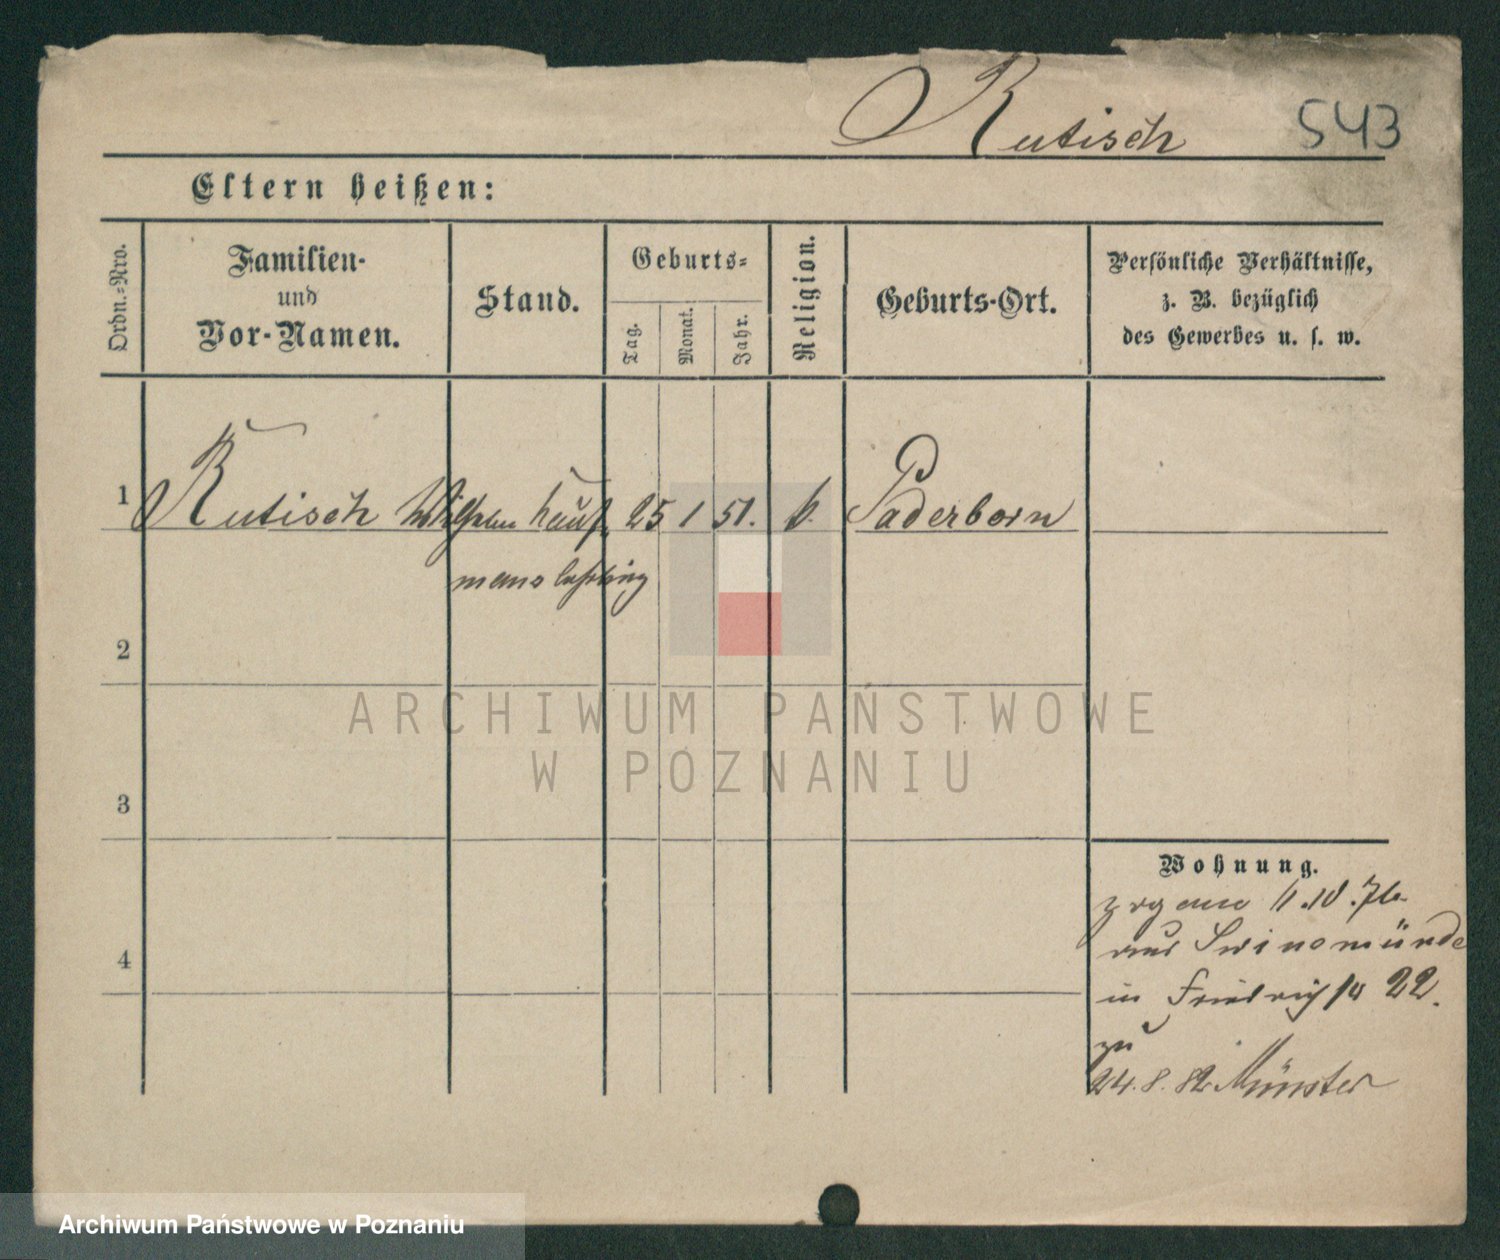 Rutisch 543
Eltern heißen:
Ordn.-Nro.
Familien-
und
Vor-Namen.
Stand.
Geburts-
Tag.
Monat.
Jahr.
Religion.
Geburts-Ort.
Persönliche Verhältnisse,
z. B. bezüglich
des Gewerbes u. s. w.
1 Rutisch Wilhelm Kauf 25 1 51. k. Paderborn
2
3
4
Wohnung.
aus Swinemünde
in 22.
zu
24.8.82 Münster
ARCHIWUM PAŃSTWOWE
W POZNANIU
Archiwum Państwowe w Poznaniu